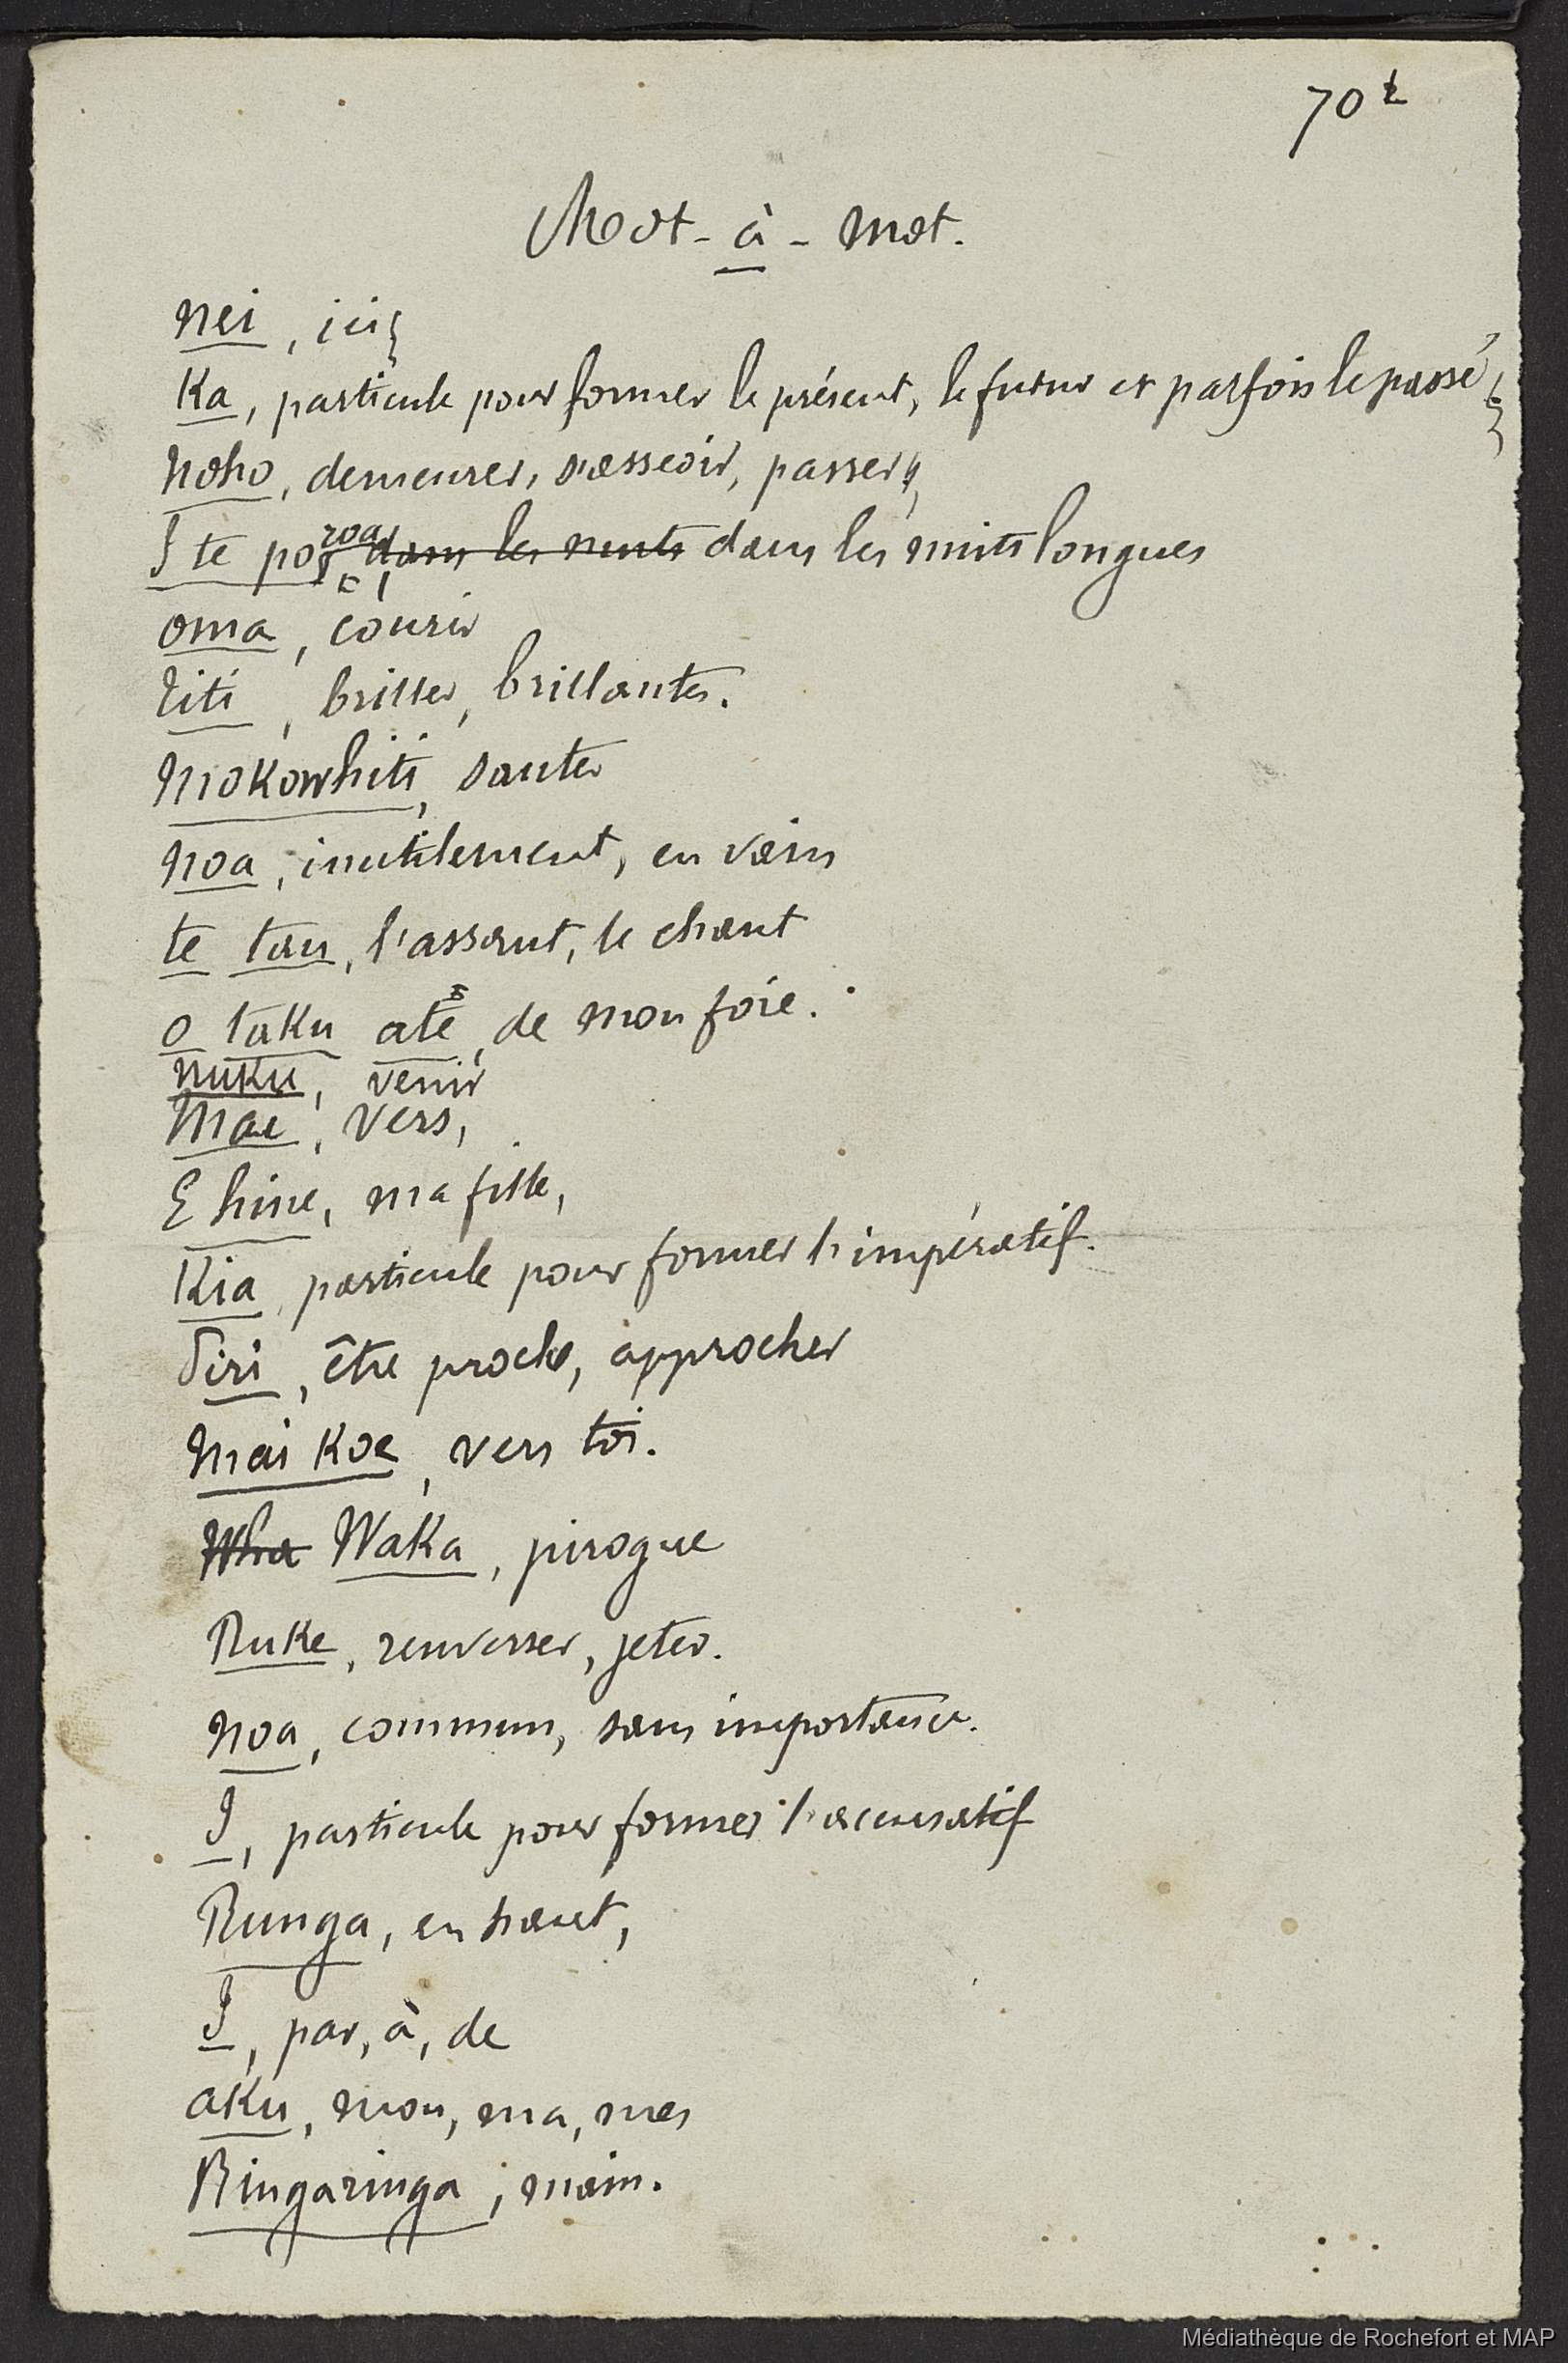 70
Mot-à-mot.
nei, ici
Ka, particule pour former le présent, le futur et parfois le passé
noho, demeurer, s'asseoir, passer
I te po roa, dans les nuits dans les nuits longues
oma, courir
titi, briller, brillantes.
mokowhiti, sauter
noa, inutilement, en vain
te tau, l'assaut, le chant
o taku ate, de mon foie.
nuku, venir
mai, vers,
E hine, ma fille,
Kia, particule pour former l'impératif.
Piri, être proche, approcher
mai koe, vers toi.
Wha Waka, pirogue
Ruke, renverser, jeter.
noa, commun, sans importance.
I, particule pour former l'accusatif
Runga, en haut,
I, par, à, de
aku, mon, ma, mes
Ringaringa, main.
Médiathèque de Rochefort et MAP